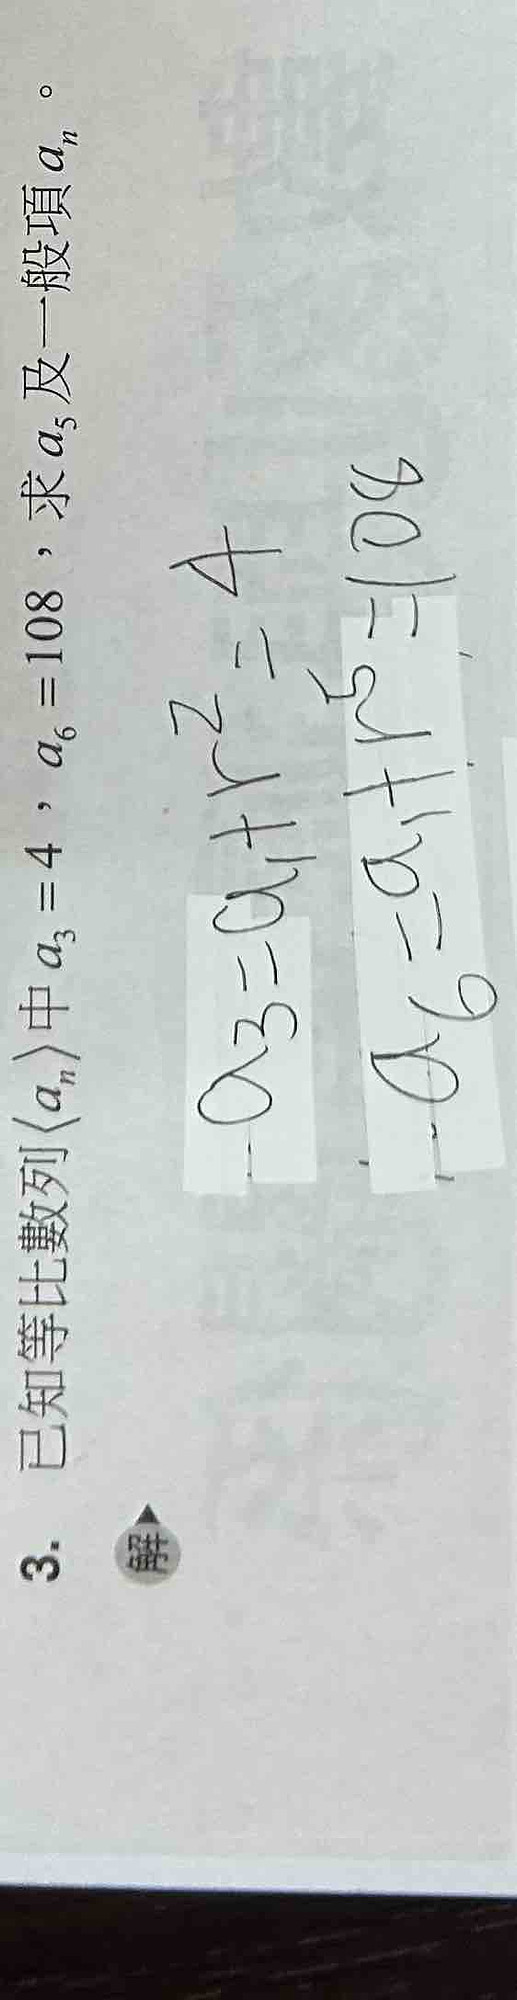 3. 已知等比數列⟨aₙ⟩中a₃=4，a₆=108，求a₅及一般項aₙ。
解
a₃=a₁+r²=4
a₆=a₁+r⁵=108